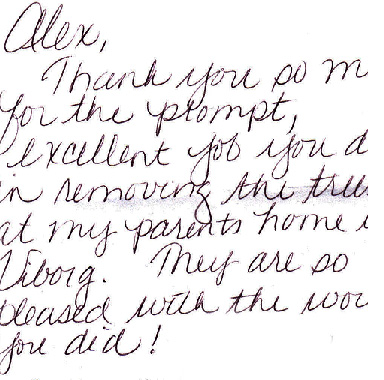 Alex,
Thank you so m
for the prompt,
excellent job you d
in removing the tree
at my parents home i
Viborg. They are so
pleased with the wor
you did!